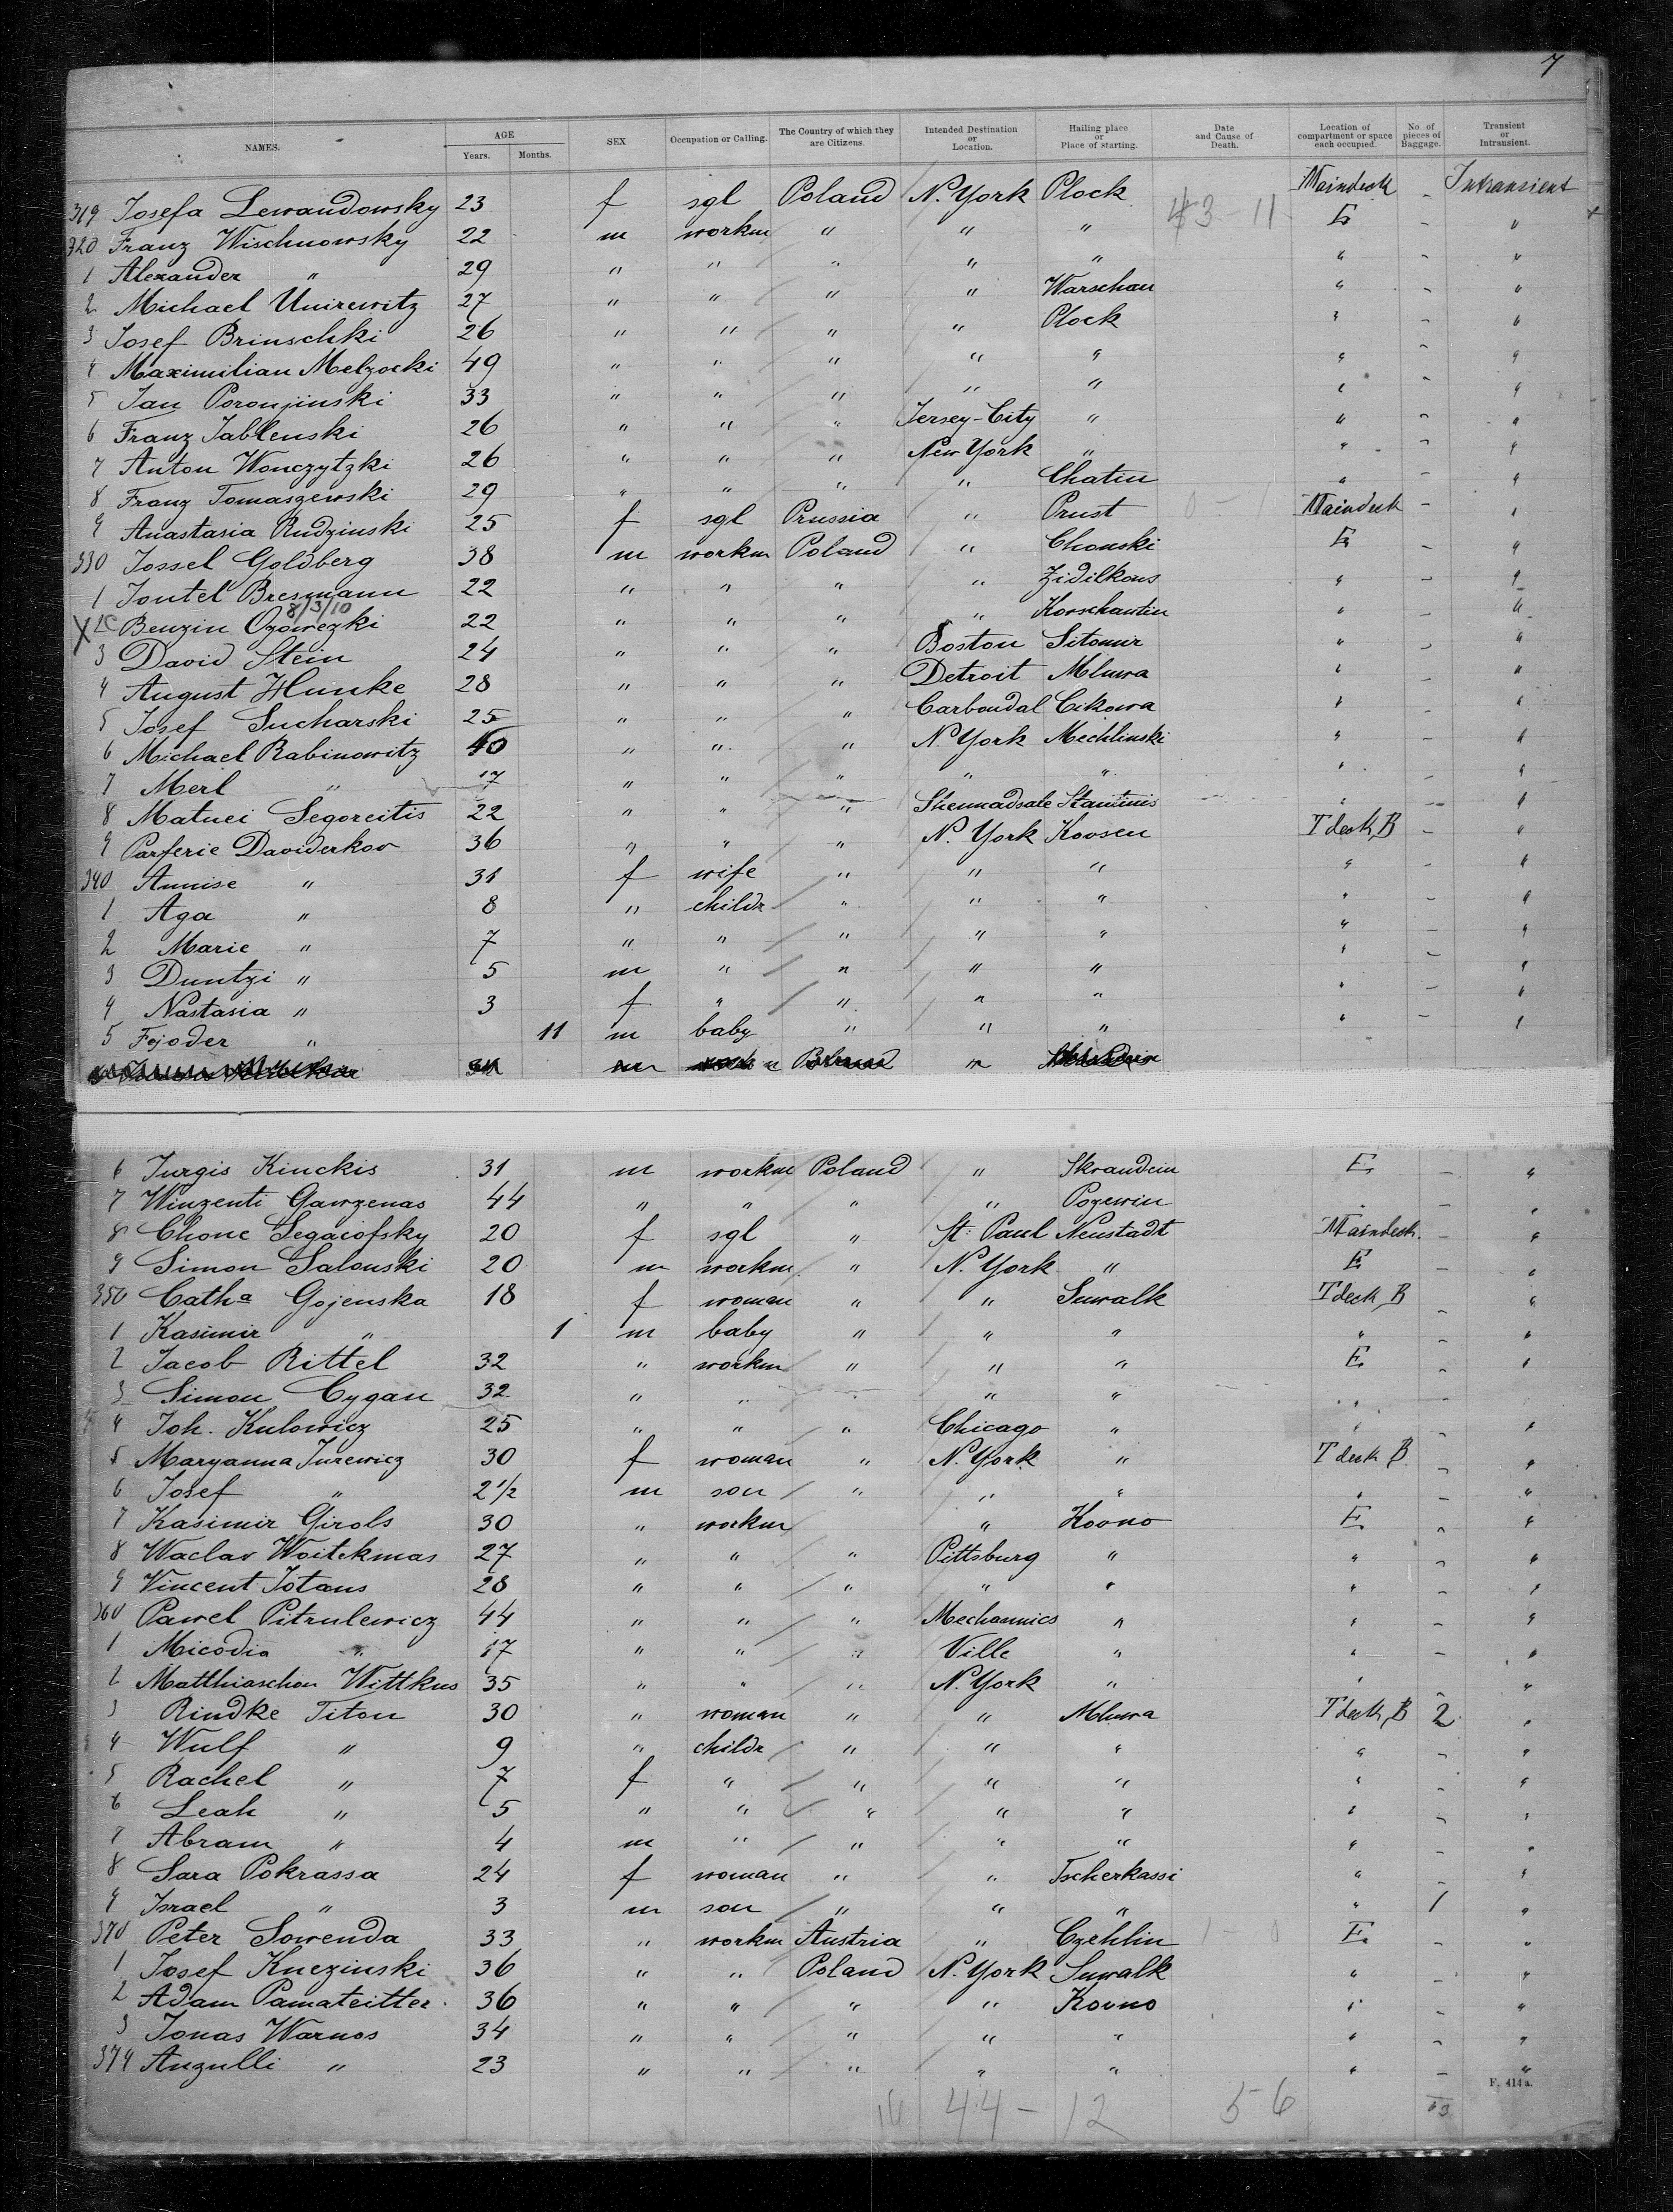 7
NAMES. AGE Years. Months. SEX Occupation or Calling. The Country of which they are Citizens. Intended Destination or Location. Hailing place or Place of starting. Date and Cause of Death. Location of compartment or space each occupied. No. of pieces of Baggage. Transient or Intransient.
319 Josefa Lewandowsky 23 f sgl Poland N. York Plock 43 - 11 Maindeck - Intransient
320 Franz Wischnowsky 22 m workm " " " E - "
1 Alexander " 29 " " " " " " - "
2 Michael Unirewitz 27 " " " " Warschau " - "
3 Josef Brinschki 26 " " " " Plock " - "
4 Maximilian Melzocki 49 " " " " " " - "
5 Jan Poronjinski 33 " " " " " " - "
6 Franz Jablenski 26 " " " Jersey-City " " - "
7 Anton Wonczytzki 26 " " " New York " " - "
8 Franz Tomaszewski 29 " " " " Chatin " - "
9 Anastasia Rudzinski 25 f sgl Prussia " Prust 0 - 1 Maindeck - "
330 Jossel Goldberg 38 m workm Poland " Chonski E - "
1 Jontel Bresmann 22 " " " " Zidilkons " - "
8/3/10
X Benzin Ozowezki 22 " " " " Korschantin " - "
3 David Stein 24 " " " Boston Sitomir " - "
4 August Hunke 28 " " " Detroit Mluwa " - "
5 Josef Sucharski 25 " " " Carbondal Cikowa " - "
6 Michael Rabinowitz 40 " " " N. York Mechlinski " - "
7 Merl " 17 " " " " " " - "
8 Matuei Segoreitis 22 " " " Shennadsale Stantinis " - "
9 Parferie Daviderkov 36 " " " N. York Kovsen T deck B - "
340 Annise " 31 f wife " " " " - "
1 Aga " 8 " childr " " " " - "
2 Marie " 7 " " " " " " - "
3 Duntzi " 5 m " " " " " - "
4 Nastasia " 3 f " " " " " - "
5 Fejoder " 11 m baby " " " " - "
6 Jurgis Kinckis 31 m workm Poland " Skraudein E - "
7 Winzenti Gawzenas 44 " " " " Pozewin " - "
8 Chone Segaiofsky 20 f sgl " St. Paul Neustadt Maindeck - "
9 Simon Salonski 20 m workm " N. York " E - "
350 Catha Gojenska 18 f woman " " Suwalk T deck B - "
1 Kasimir " 1 m baby " " " " - "
2 Jacob Rittel 32 " workm " " " E - "
3 Simon Cygan 32 " " " " " -
4 Joh. Kulowicz 25 " " " Chicago " " - "
5 Maryanna Jurewicz 30 f woman " N. York " T deck B - "
6 Josef " 2 1/2 m son " " " " - "
7 Kasimir Girols 30 " workm " Kovno E - "
8 Waclav Woitekmas 27 " " " Pittsburg " " - "
9 Vincent Jotans 28 " " " " " " - "
360 Pawel Pitrulewicz 44 " " " Mechannics " " - "
1 Micodia " 17 " " " Ville " " - "
2 Matthiaschon Wittkus 35 " " " N. York " " - "
3 Rindke Titon 30 " woman " " Mluwa T deck B 2 "
4 Wulf " 9 " childr " " " " - "
5 Rachel " 7 f " " " " " - "
6 Leah " 5 " " " " " " - "
7 Abram " 4 m " " " " " - "
8 Sara Pokrassa 24 f woman " " Tscherkassi " - "
9 Israel " 3 m son " " " " 1 "
370 Peter Sowenda 33 " workm Austria " Czehlin 1 - 0 E - "
1 Josef Knezinski 36 " " Poland N. York Suwalk " - "
2 Adam Pamateitter 36 " " " " Kovno " - "
3 Jonas Warnos 34 " " " " " " - "
374 Anzulli " 23 " " " " " " - "
F. 414a.
44 - 12 56